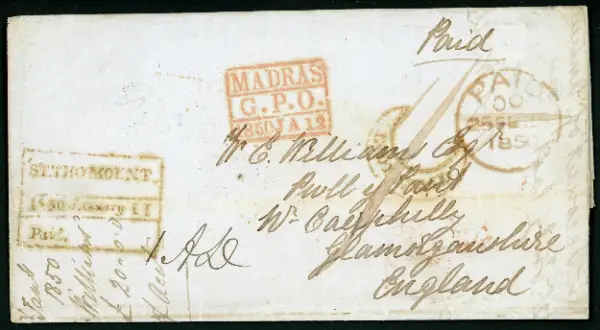 Paid
MADRAS
G.P.O.
1850 JA 12
PAID
25 FE
1850
W. E. Williams Esqr
Pwll y Pant
Nr Caerphilly
Glamorganshire
England
ST. THO. MOUNT.
1850 January 11
Paid.
1850
Williams
£ 20-0-0